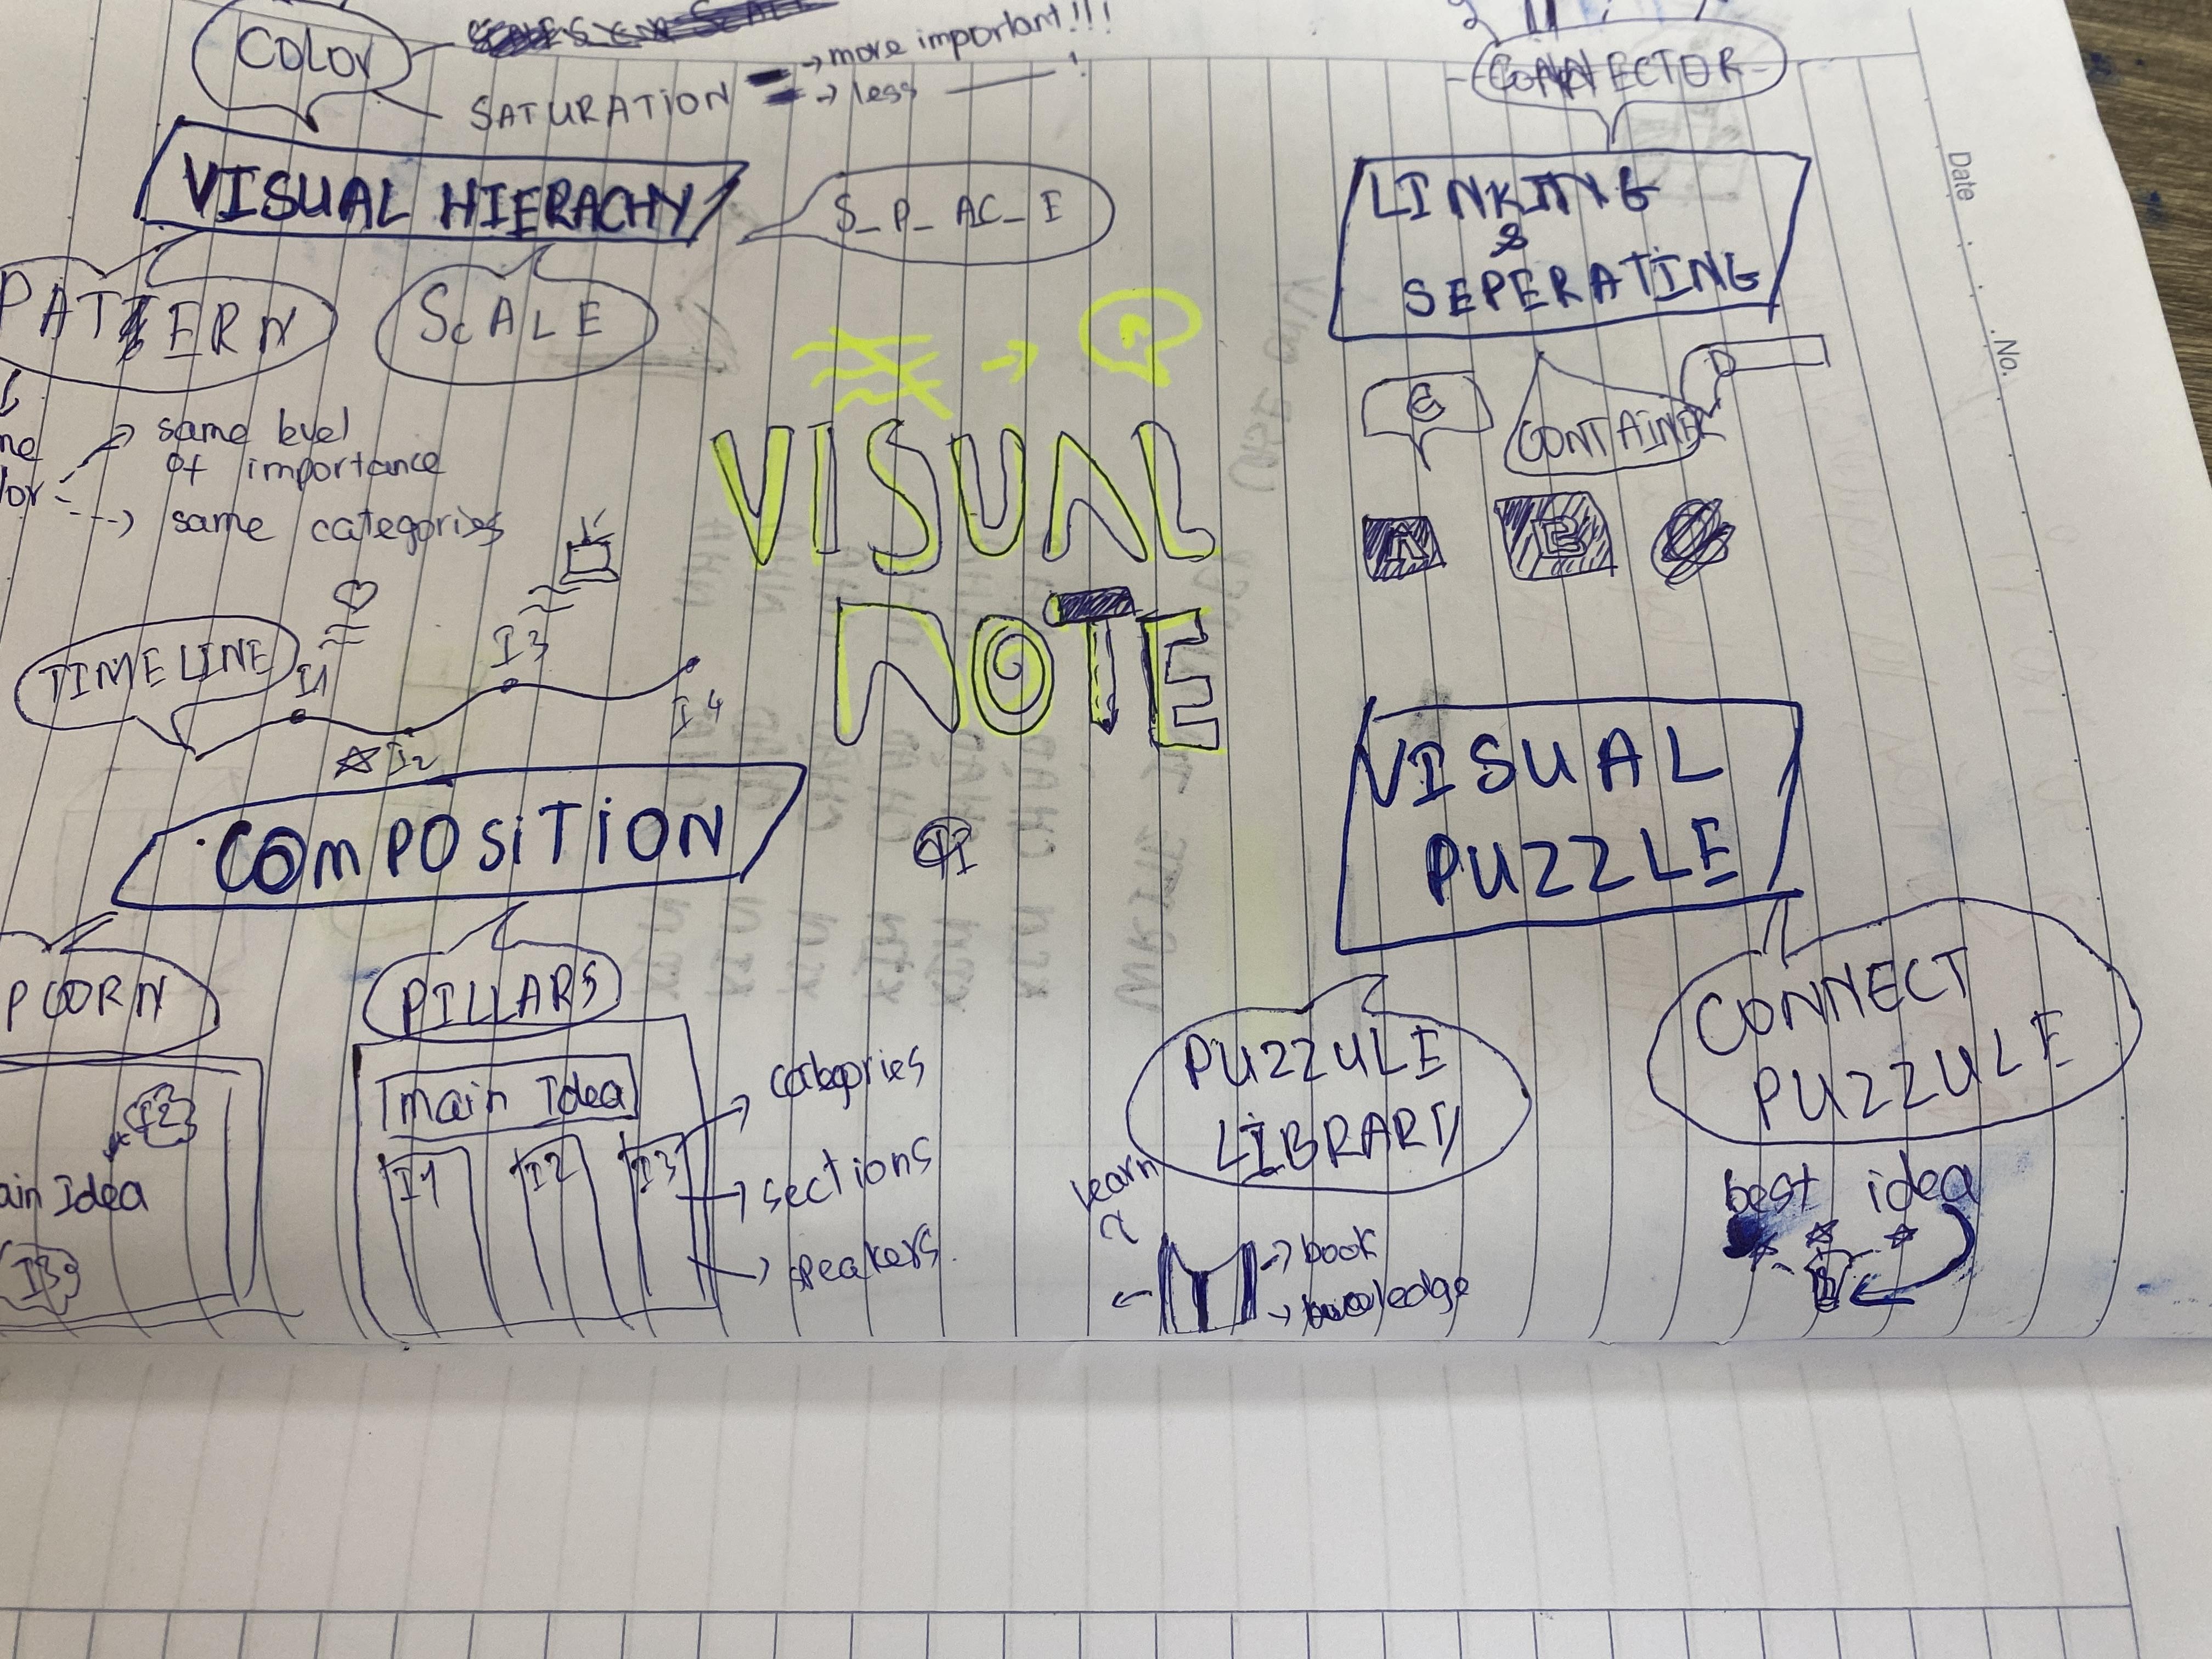 COLOR
SATURATION → more important!!!
→ less !
VISUAL HIERACHY
S_P_AC_E
PATTERN
SCALE
same level
of importance
same categories
TIMELINE
I1
I2
I3
I4
COMPOSITION
PCORN
I2
ain Idea
I3
PILLARS
main Idea
I1 I2 I3
categories
sections
speakers
VISUAL
NOTE
CONNECTOR
LINKING
&
SEPERATING
CONTAINER
D
A
B
VISUAL
PUZZLE
PUZZULE
LIBRARY
learn
book
CONNECT
PUZZULE
best idea
Date
No.